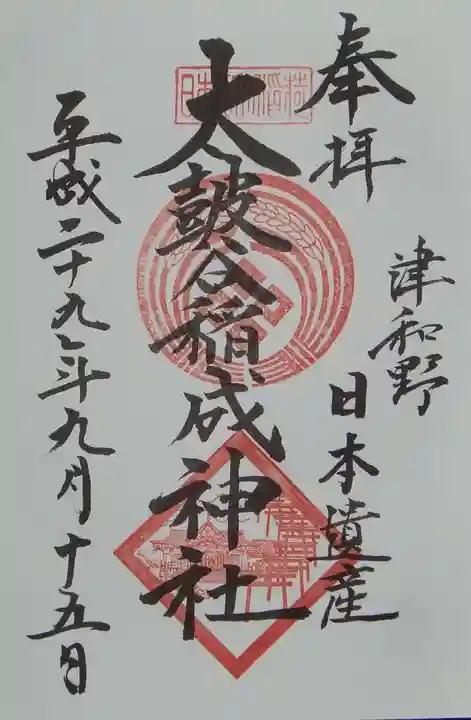 奉拝
津和野
日本遺産
日本 稲荷
太皷谷稲成神社
平成二十九年九月十五日